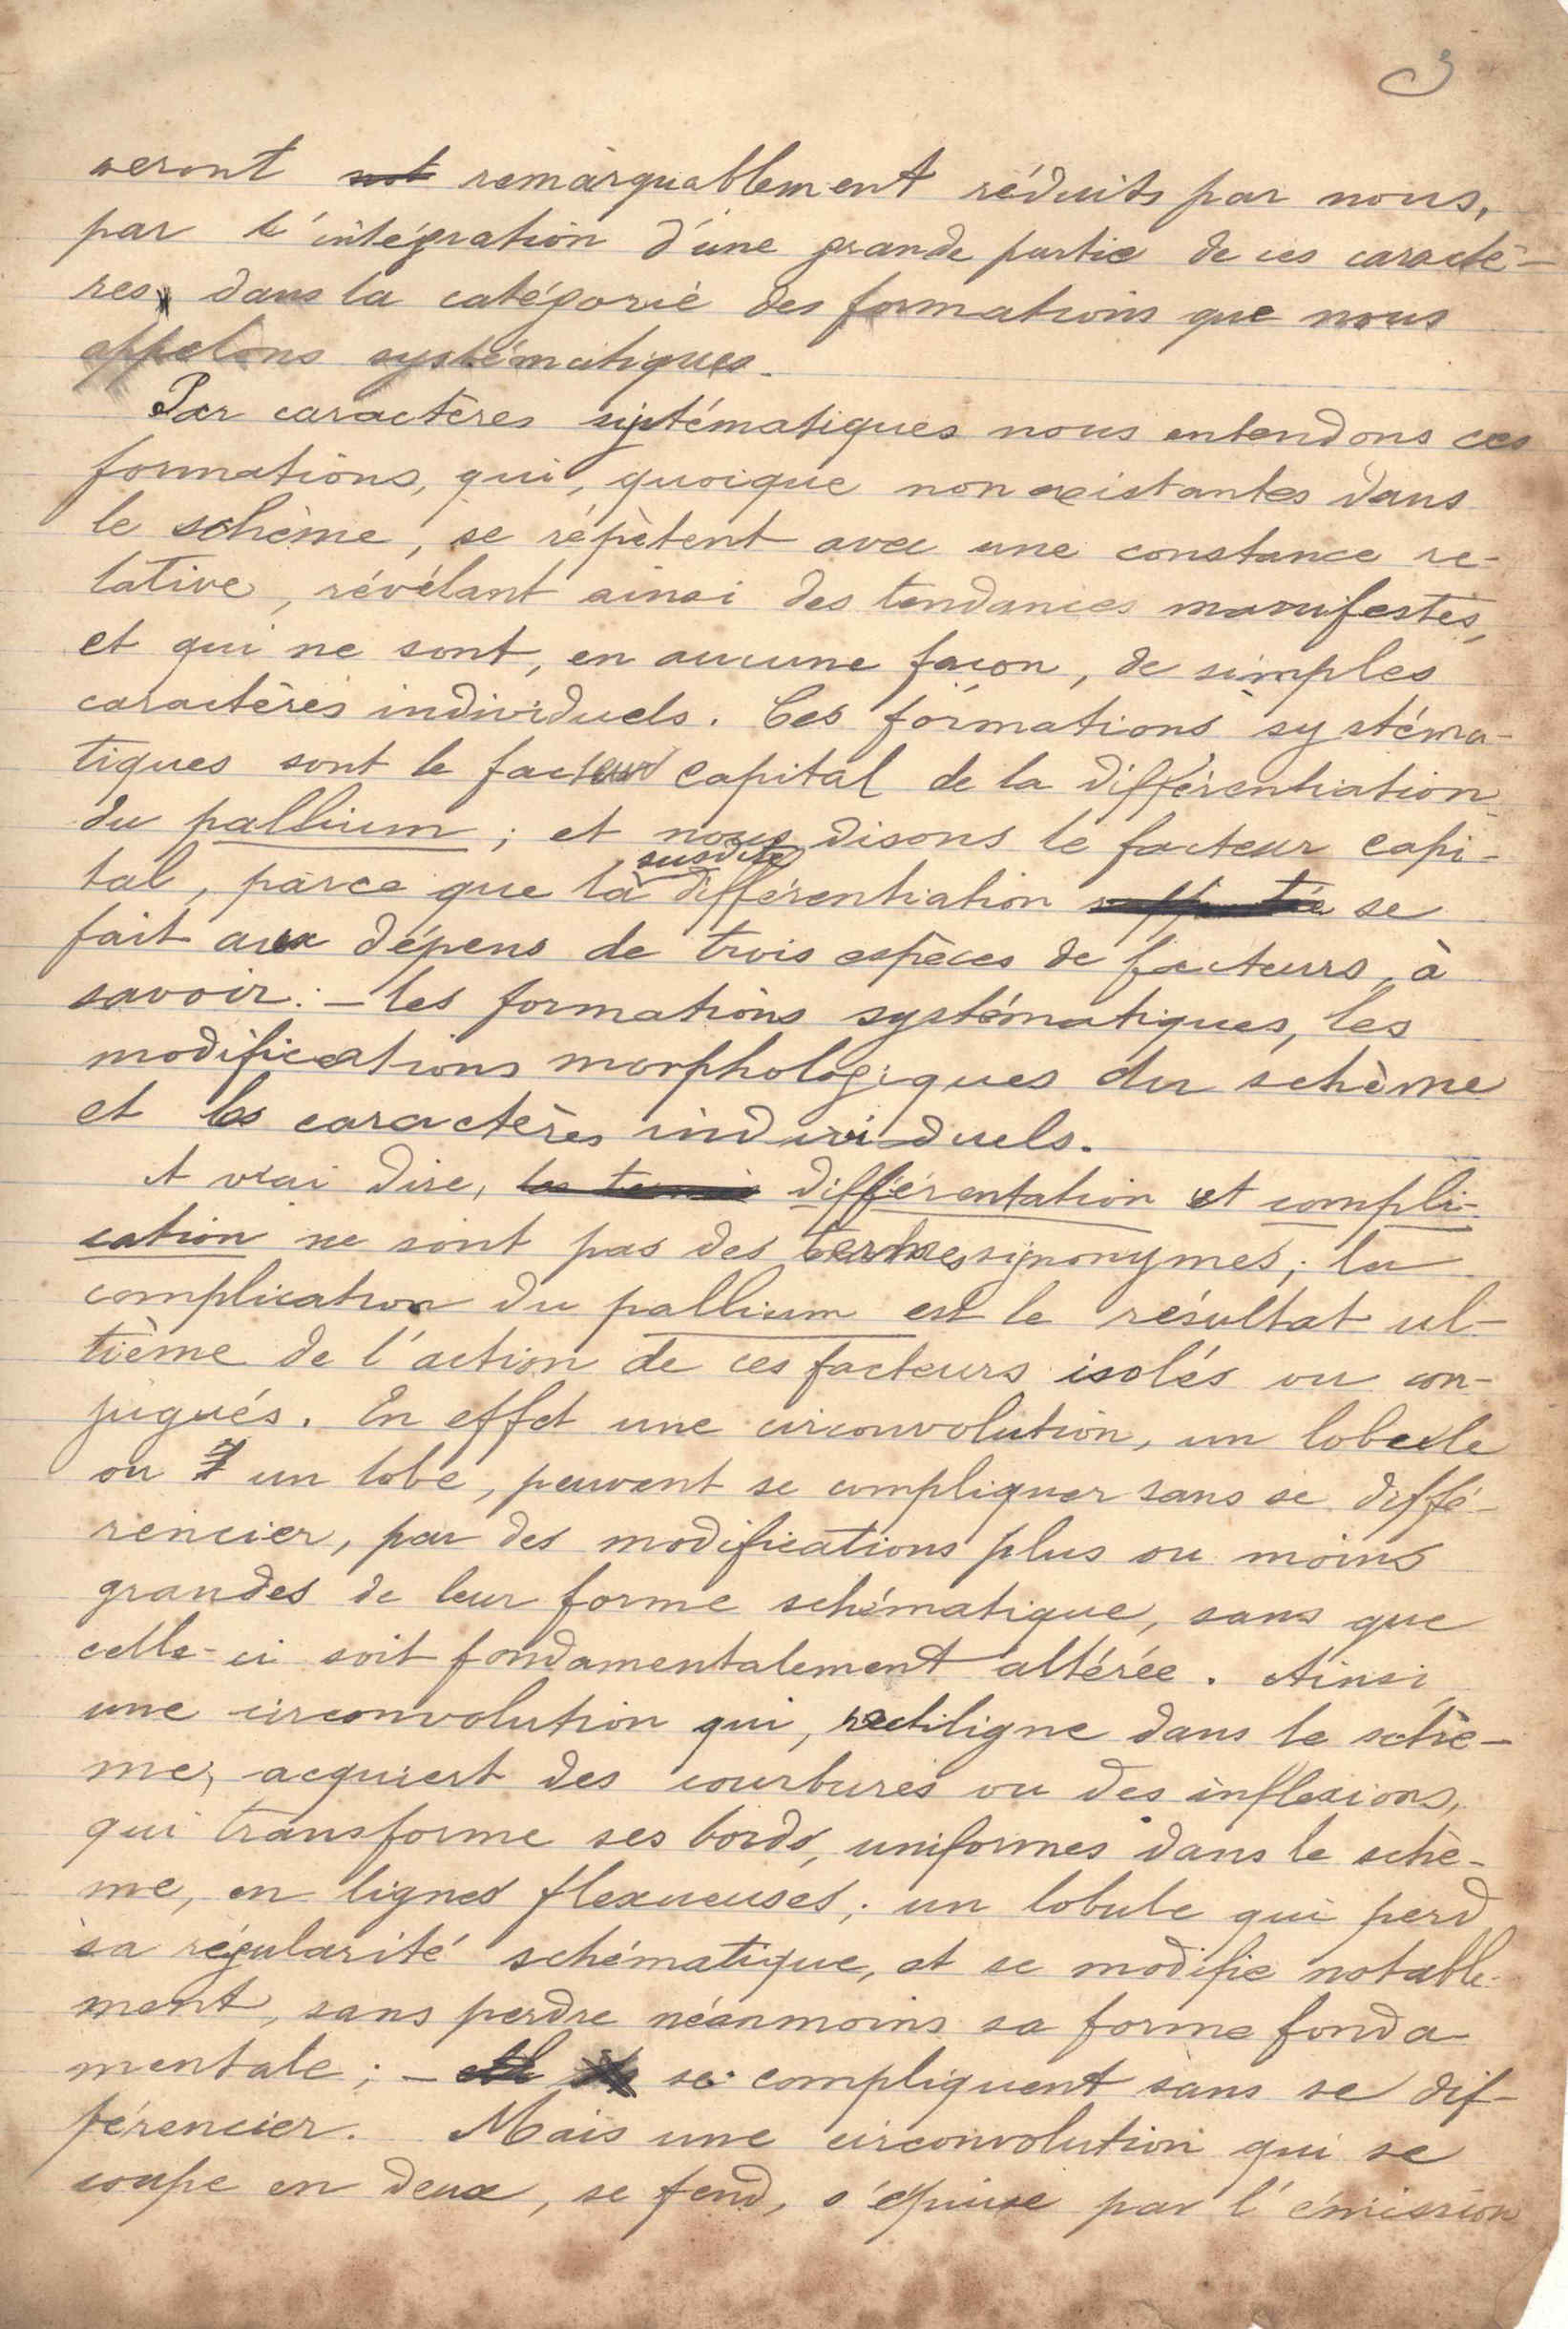 3
seront remarquablement réduits par nous,
par l'intégration d'une grande partie de ces caractè-
res, dans la catégorie des formations que nous
appelons systématiques.
Par caractères systématiques nous entendons ces
formations, qui, quoique non existantes dans
le schème, se répètent avec une constance re-
lative, révélant ainsi des tendances manifestes,
et qui ne sont, en aucune façon, de simples
caractères individuels. Ces formations systéma-
tiques sont le facteur capital de la différentiation
du pallium ; et nous disons le facteur capi-
susdite
tal, parce que la différentiation se
fait aux dépens de trois espèces de facteurs, à
savoir : - les formations systématiques, les
modifications morphologiques du schème
et les caractères individuels.
A vrai dire, différentation et compli-
cation ne sont pas des termes signonymes ; la
complication du pallium est le résultat ul-
tième de l'action de ces facteurs isolés ou con-
jugués. En effet une circonvolution, un lobule
ou un lobe, peuvent se compliquer sans se diffé-
rencier, par des modifications plus ou moins
grandes de leur forme schématique, sans que
celle-ci soit fondamentalement altérée. Ainsi
une circonvolution qui, rectiligne dans le schè-
me, acquiert des courbures ou des inflexions,
qui transforme ses bords, uniformes dans le schè-
me, en lignes flexueuses ; un lobule qui perd
sa régularité schématique, et se modifie notable-
ment, sans perdre néanmoins sa forme fonda-
mentale ; - se compliquent sans se dif-
férencier. Mais une circonvolution qui se
coupe en deux, se fend, s'épuise par l'émission